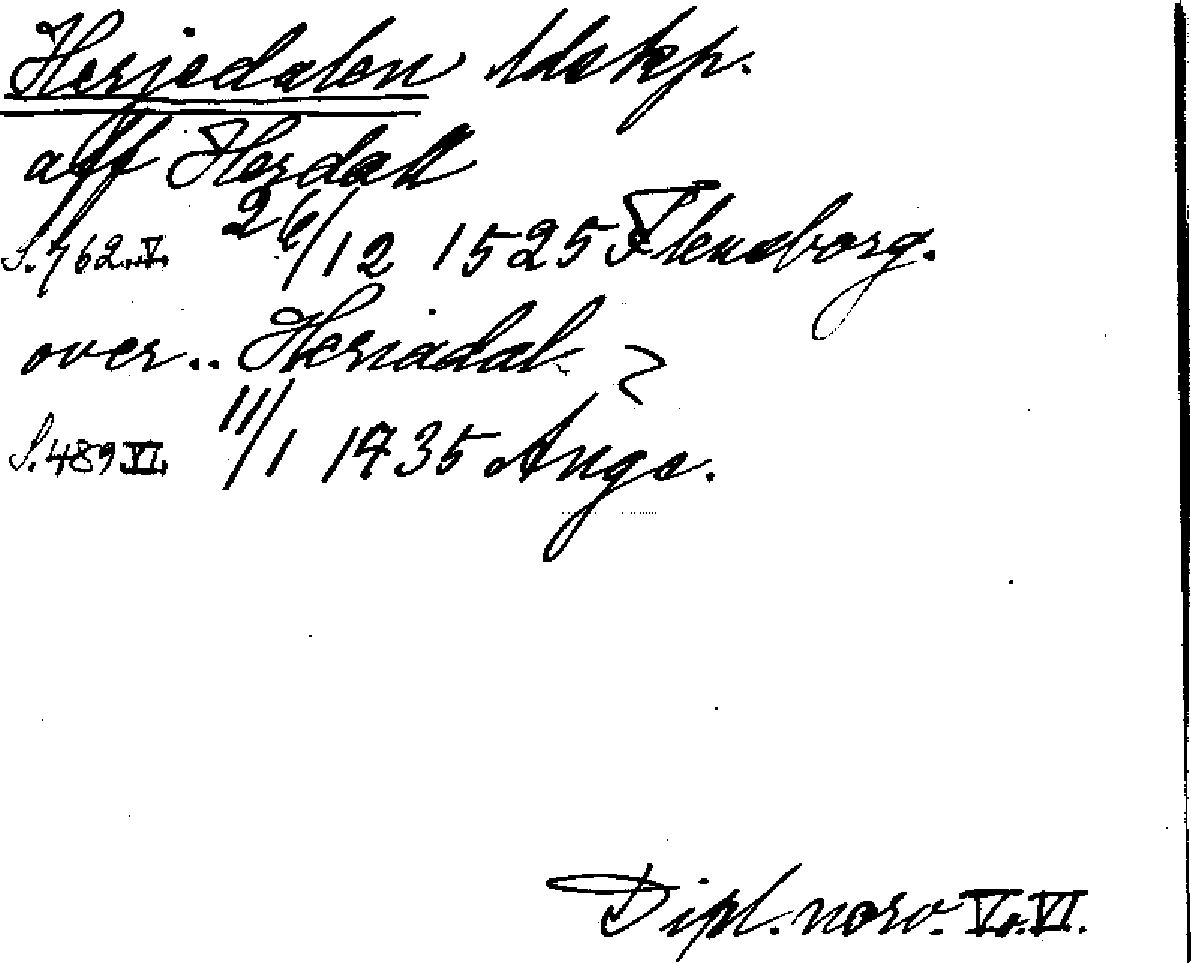 Herjedalen ldskp.
aff Herdall
S. 762. V. 26/12 1525 Flensborg.
over.. Heriadal
S. 489 VI. 11/1 1435 Ange.
Dipl. norv. V o. VI.